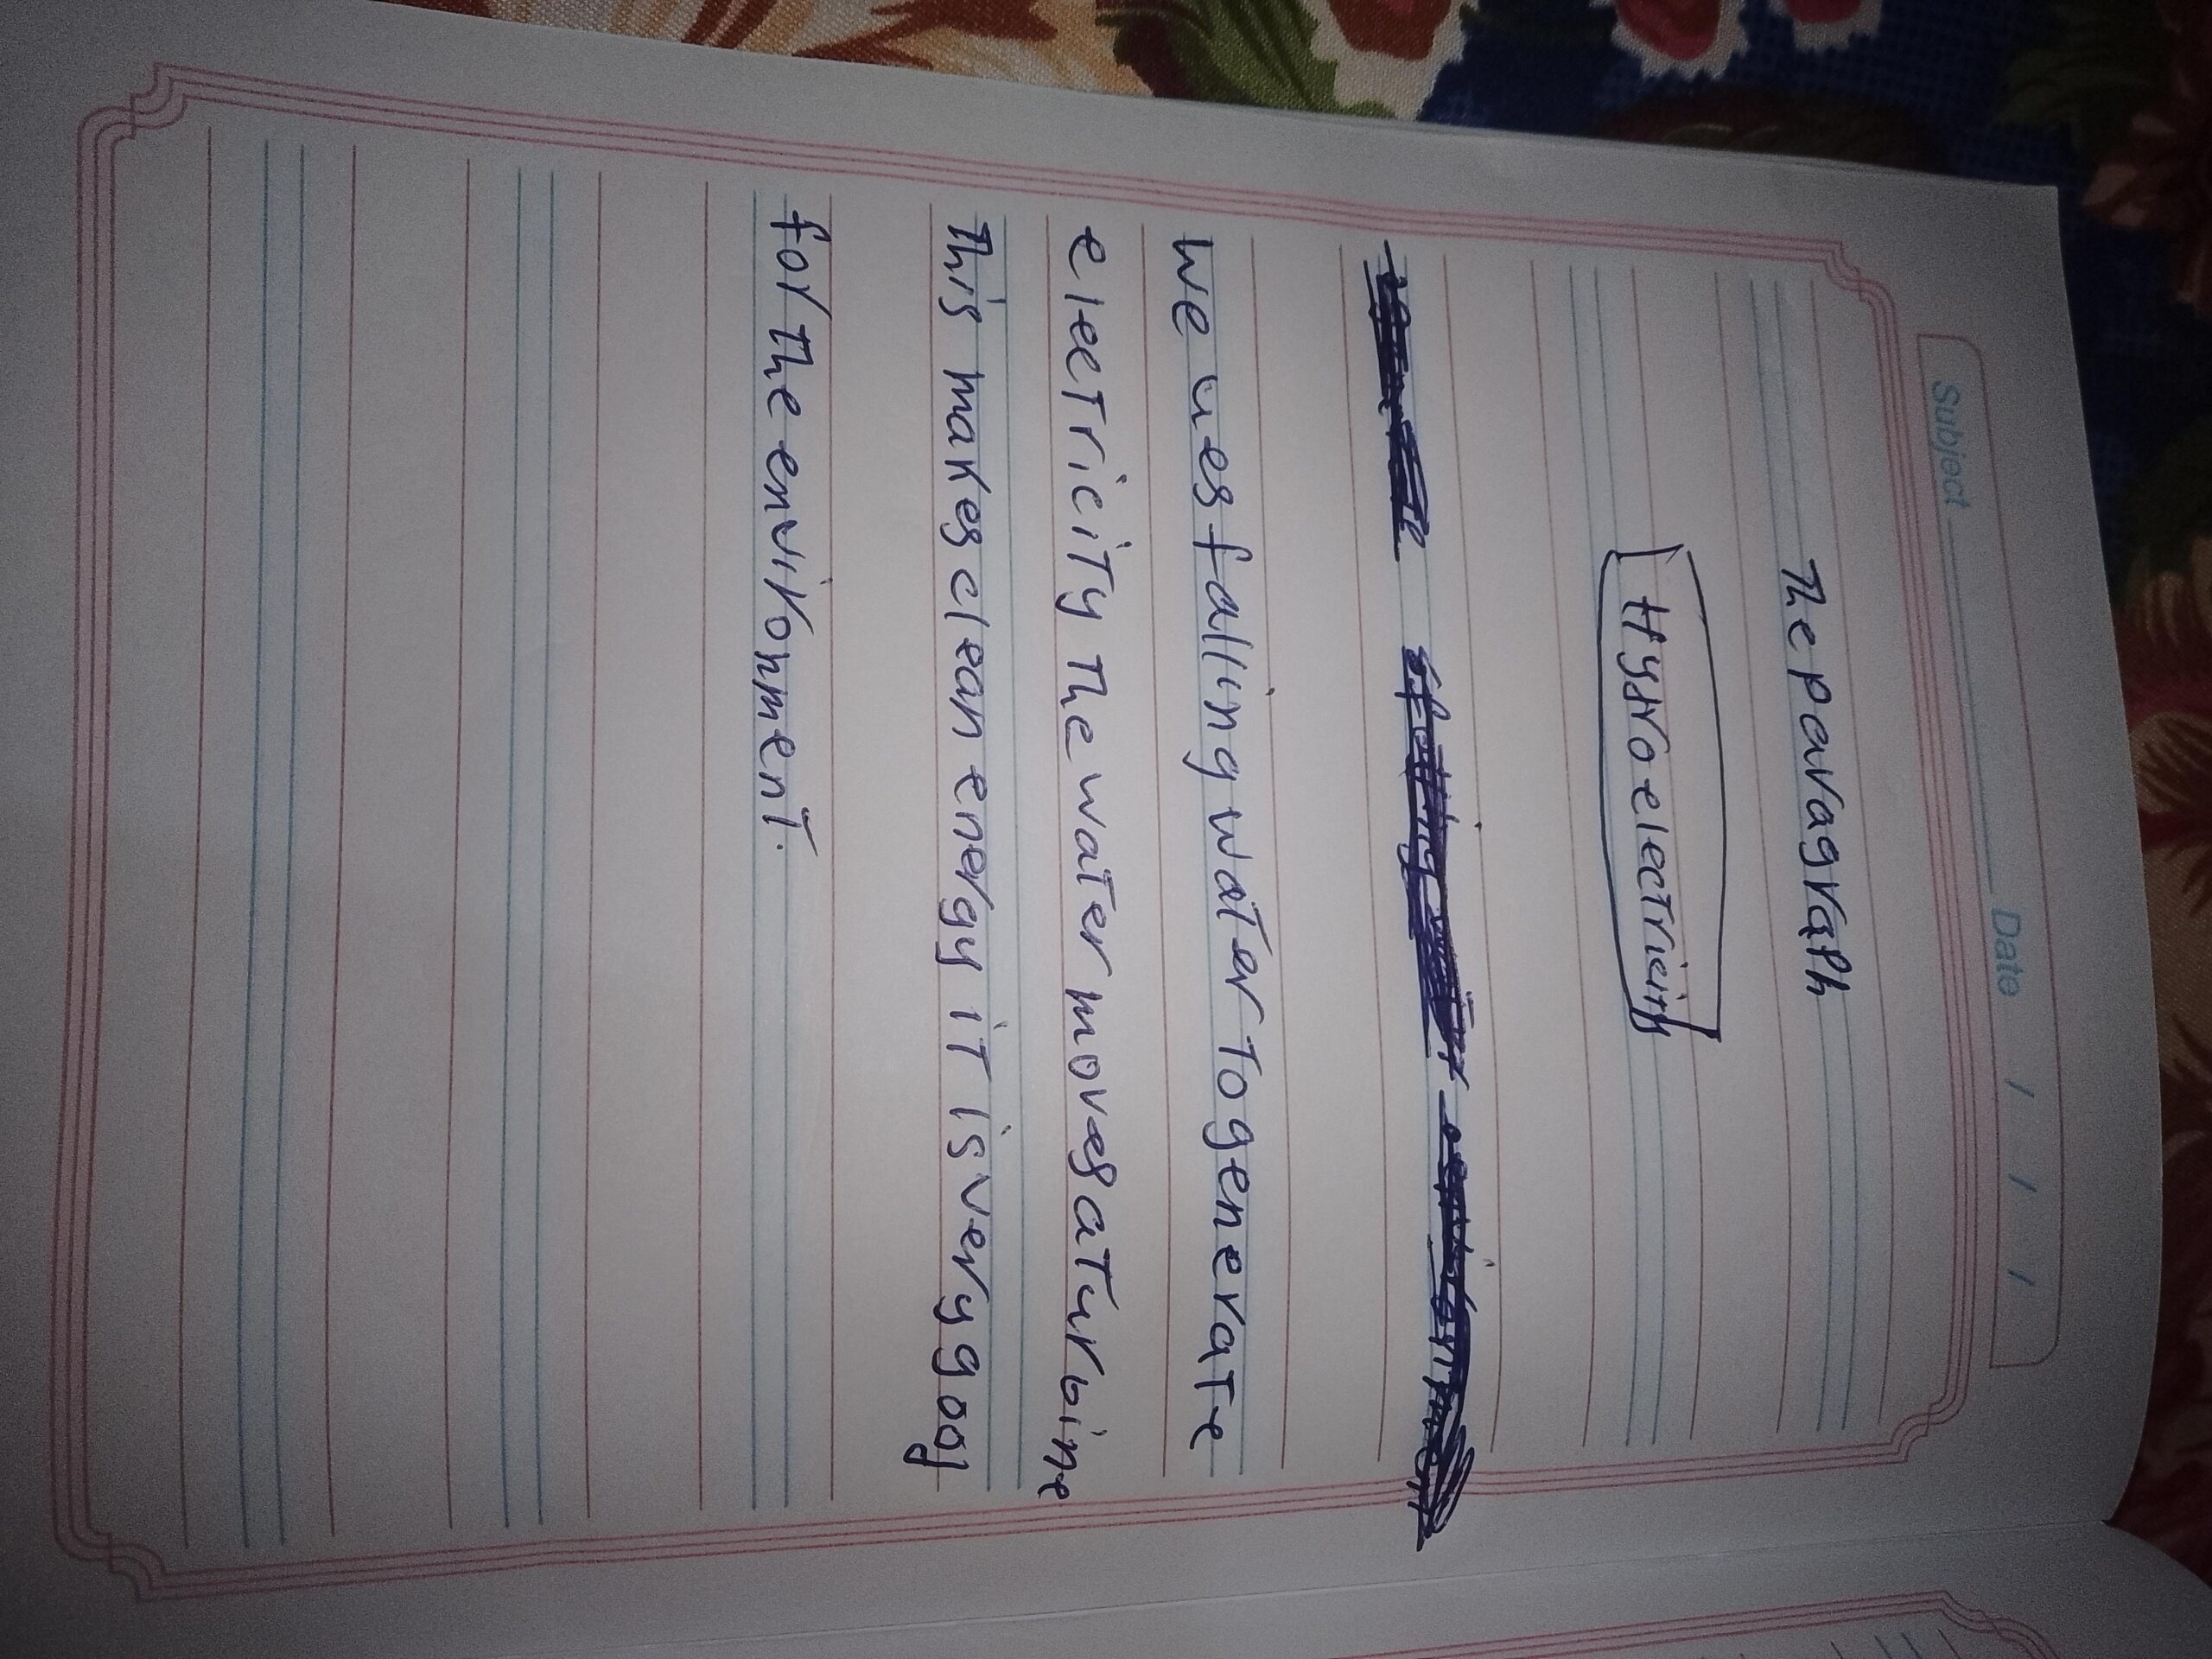 Subject
Date / / /
The paragraph
Hydroelectricity
We ues falling water to generate
electricity the water moves a turbine
this makes clean energy it is very good
for the environment.